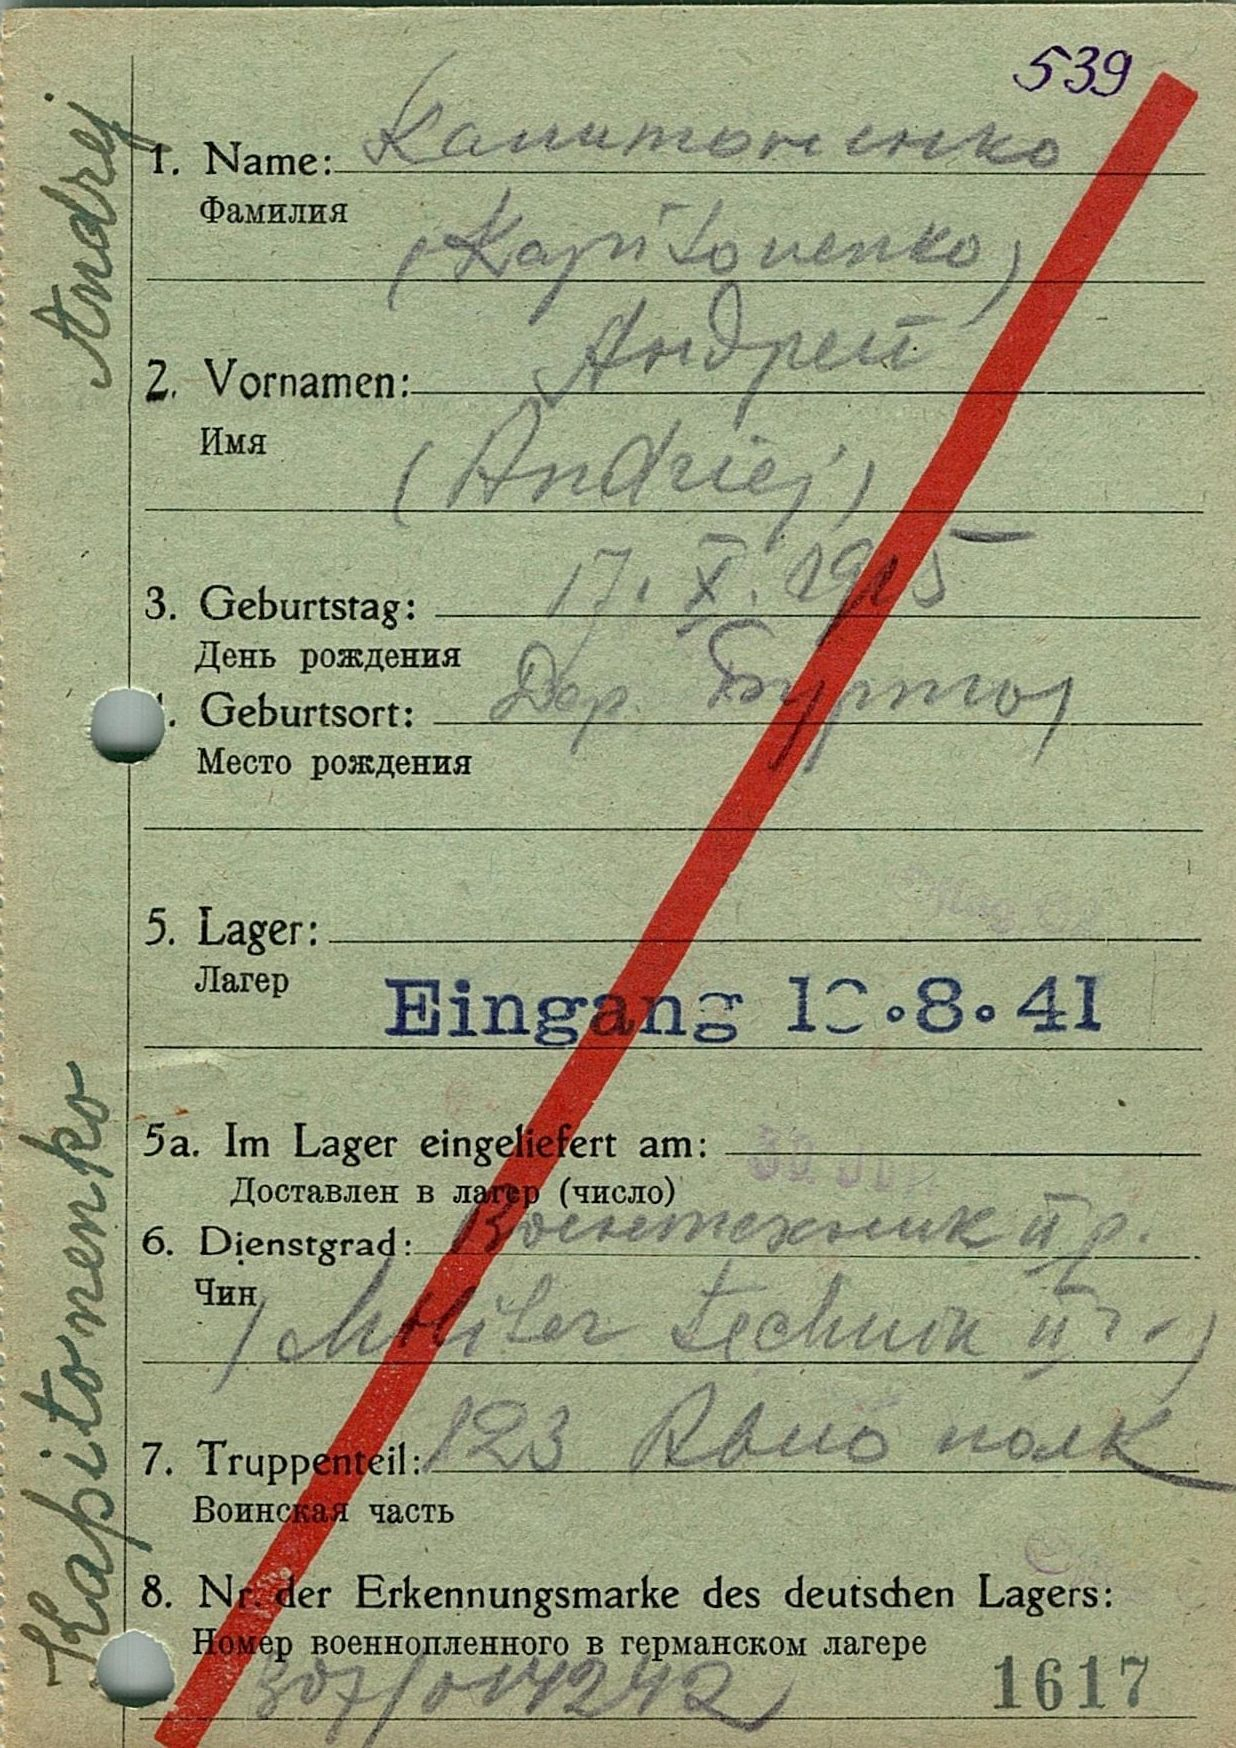 539
1. Name: Капитоненко
Фамилия
(Kapitonenko)
2. Vornamen: Андрей
Имя
(Andriej)
3. Geburtstag: 17. X. 1915
День рождения
4. Geburtsort: Дер. Бурты
Место рождения
5. Lager:
Лагер
Eingang 10.8.41
5a. Im Lager eingeliefert am:
Доставлен в лагер (число)
6. Dienstgrad: Воентехник II р.
Чин
(Militer technik II r.)
7. Truppenteil: 123 полк
Воинская часть
8. Nr. der Erkennungsmarke des deutschen Lagers:
Номер военнопленного в германском лагере
307/014242
1617
Kapitonenko Andrej